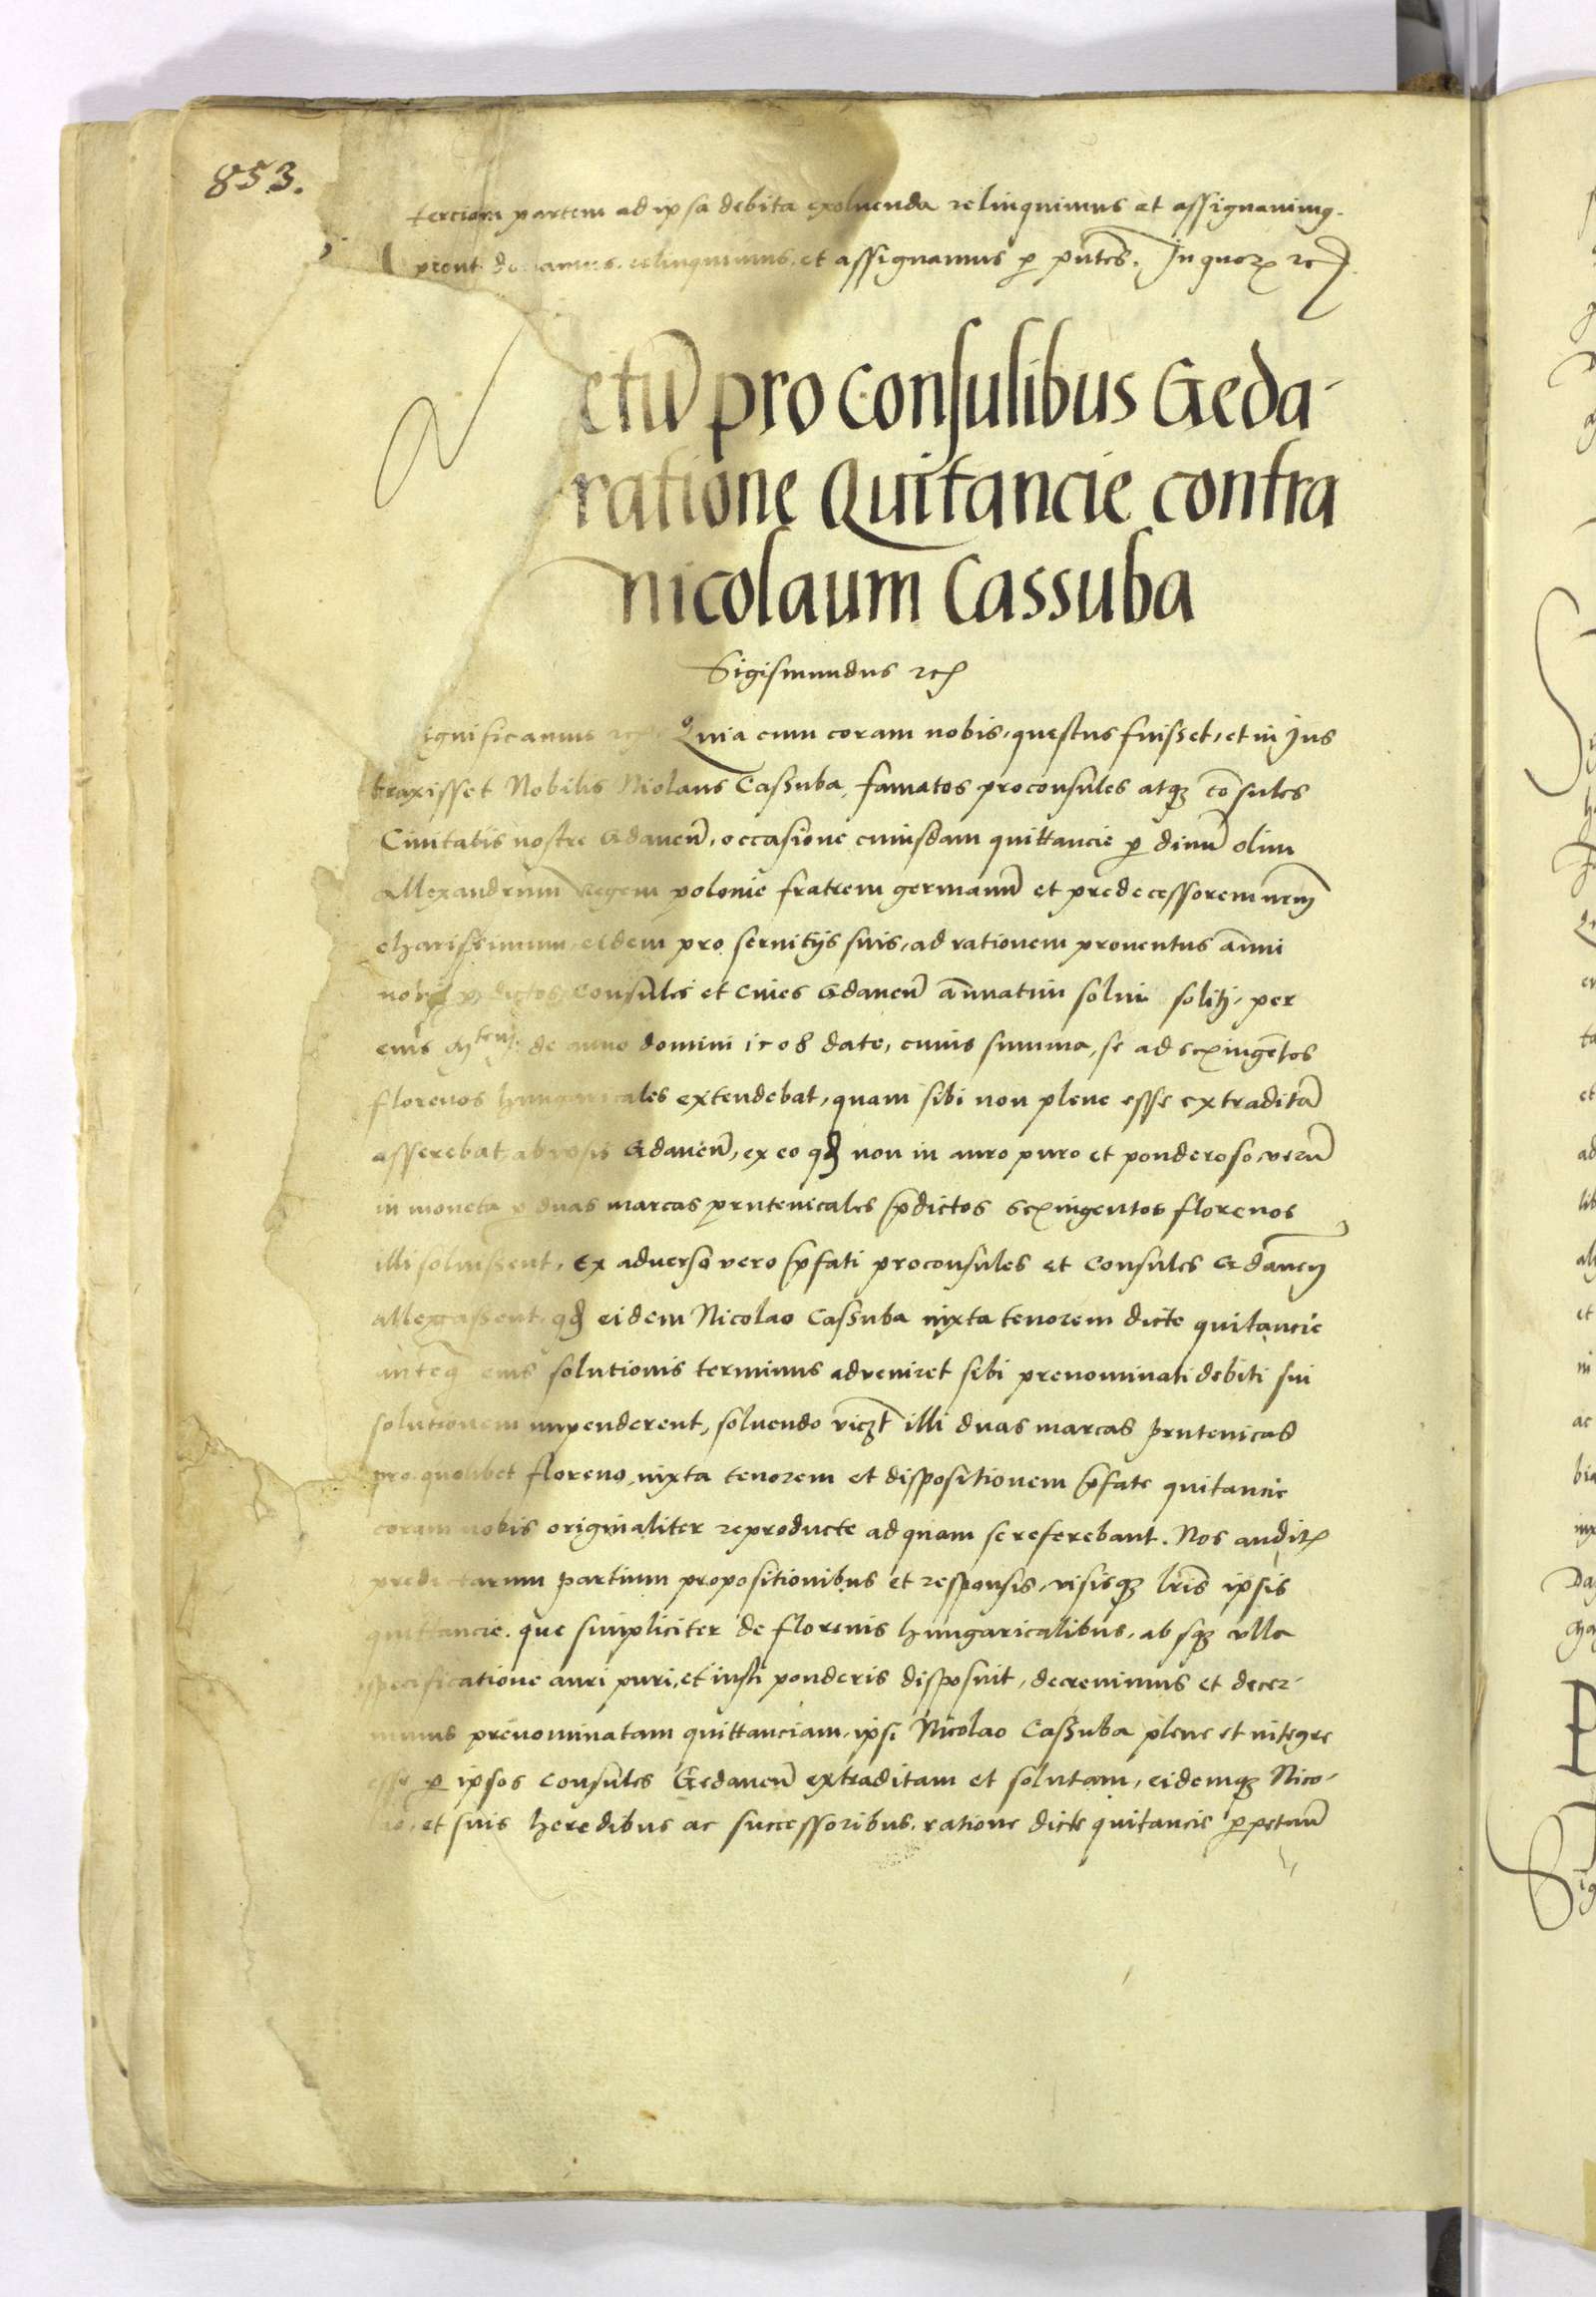 853.
terciam partem ad ipsa debita exoluenda relinquimus et assignauimꝰ.
prout do amus. relinquimus. et assignamus ꝑ pūtes. In quorꝝ ꝛc
etū pro consulibus Geda-
ratione Quitancie contra
nicolaum Cassuba
Sigismundus ꝛcꝭ
ignificamus ꝛcꝭ. Quia cum coram nobis, questus fuisset, et in Jus
traxisset Nobilis Niolaus Cassuba, famatos proconsules atqꝫ cōsules
Ciuitatis nostre Gdaneñ, occasione cuiusdam quittancie ꝑ diuū olim
Allexandrum Regem polonie fratrem germanū et predecessorem nr̄m
charissimum, eidem pro seruitijs suis, ad rationem prouentus añui
nobis ꝑ dictos Consules et Ciues Gdaneñ añuatim solui solitj, per
eius Mtem. de anno domini 1508 date, cuius summa, se ad sexingētos
florenos hungaricales extendebat, quam sibi non plene esse extraditā
asserebat ab ipsis Gdaneñ, ex eo qđ non in auro puro et ponderoso, verū
in moneta ꝑ duas marcas prutenicales p̄dictos sexingentos florenos
illi soluissent, Ex aduerso vero p̄fati proconsules et Consules Gdaneñ
allegassent, qđ eidem Nicolao Cassuba iuxta tenorem dicte quitancie
anteqꝫ eius solutionis terminus adueniret sibi prenominati debiti sui
solutionem impenderent, soluendo vicꝫt illi duas marcas prutenicas
pro quolibet floreno, iuxta tenorem et dispositionem p̄fate quitancie
coram nobis originaliter reproducte ad quam se referebant. Nos auditꝭ
predictarum partium propositionibus et responsis, visisqꝫ lr̄is ipsis
quittancie. que simpliciter de florenis hungaricalibus, absqꝫ vlla
specificatione auri puri, et iusti ponderis disposuit, decreuimus et decer-
nimus prenominatam quittanciam, ipsi Nicolao Cassuba plene et integre
esse ꝑ ipsos Consules Gedaneñ extraditam et solutam, eidemqꝫ Nico-
lao, et suis heredibus ac successoribus, ratione dicte quitancie ꝑpetuū